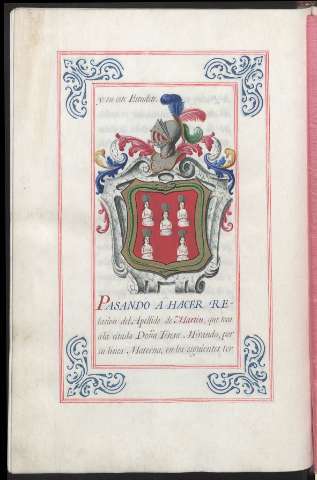 y en este Escudete.
PASANDO A HACER RE-
lacion del Apellido de Martin, que toca
ala citada Doña Teresa Mirando, por
su linea Materna, en los siguientes ter